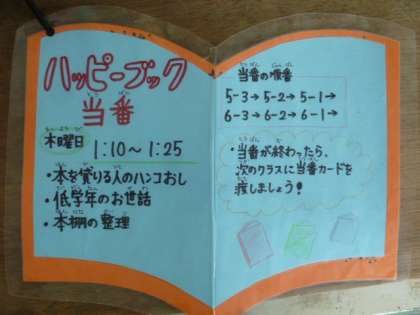 ハッピーブック
当番
木曜日
1:10～1:25
・本を借りる人のハンコおし
・低学年のお世話
・本棚の整理
当番の順番
5-3→5-2→5-1→
6-3→6-2→6-1→
・当番が終わったら、
次のクラスに当番カードを
渡しましょう!